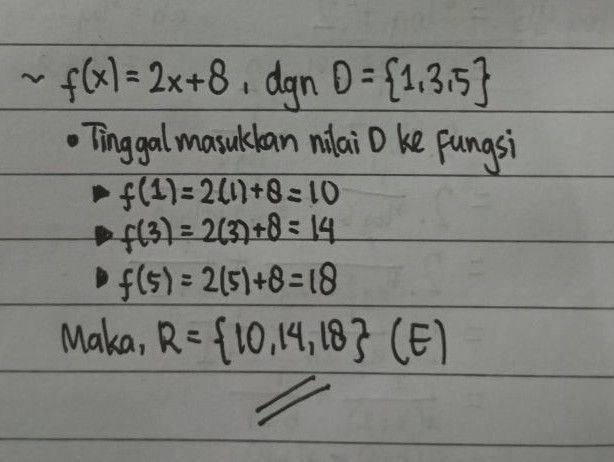 ~ f(x) = 2x+8, dgn D = {1,3,5}
• Tinggal masukkan nilai D ke fungsi
▶ f(1) = 2(1)+8 = 10
▶ f(3) = 2(3)+8 = 14
▶ f(5) = 2(5)+8 = 18
Maka, R = {10,14,18} (E)